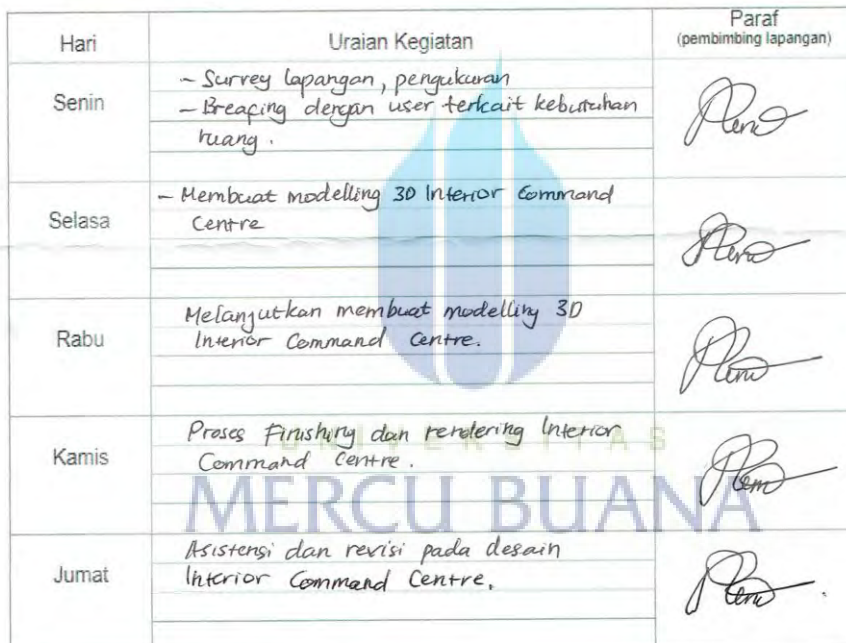 Hari Uraian Kegiatan Paraf
(pembimbing lapangan)
Senin
- Survey lapangan, pengukuran
- Breafing dengan user terkait kebutuhan
ruang.
Selasa
- Membuat modelling 3D Interior Command
Centre
Rabu
Melanjutkan membuat modelling 3D
Interior Command Centre.
Kamis
Proses Finishing dan rendering Interior
Command Centre.
UNIVERSITAS
MERCU BUANA
Jumat
Asistensi dan revisi pada desain
Interior Command Centre.